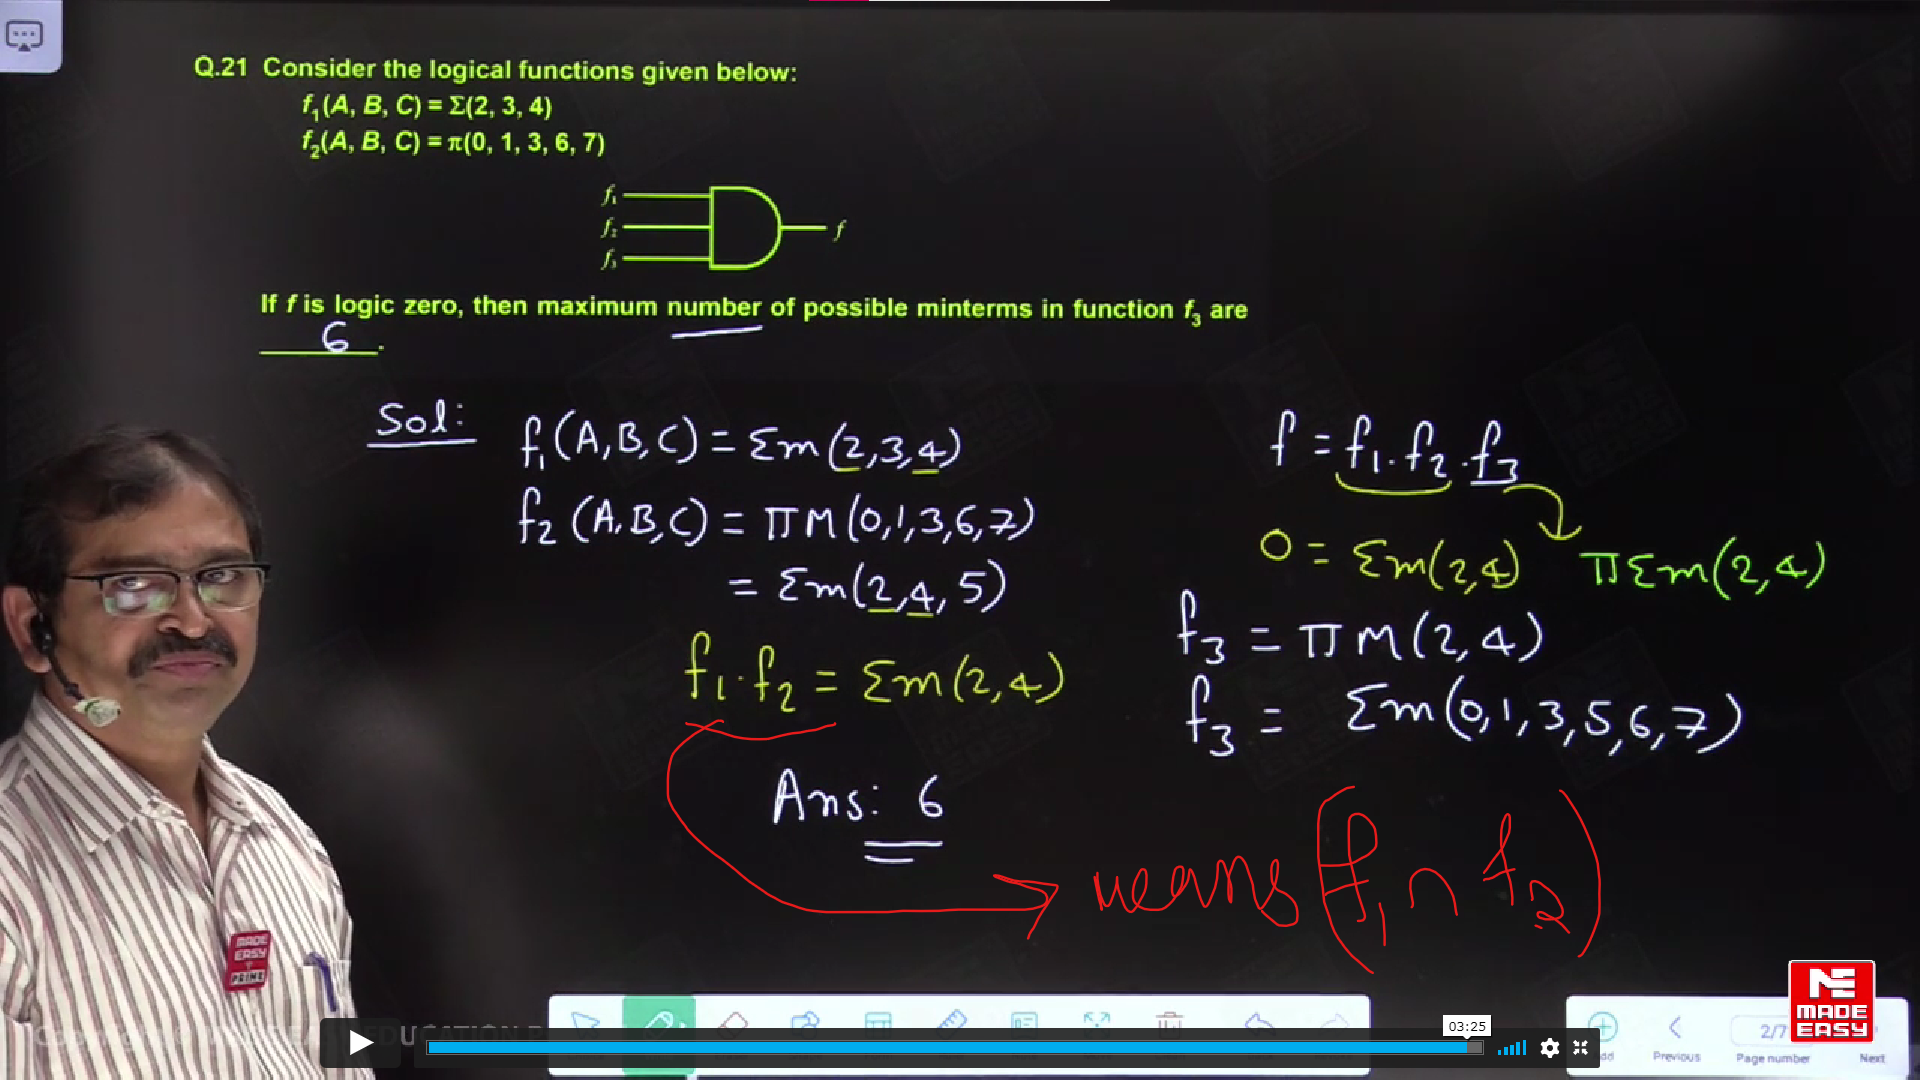 Q.21 Consider the logical functions given below:
f₁(A, B, C) = Σ(2, 3, 4)
f₂(A, B, C) = π(0, 1, 3, 6, 7)
f₁
f₂
f₃
f
If f is logic zero, then maximum number of possible minterms in function f₃ are
6.
Sol:
f₁(A,B,C) = Σm(2,3,4)
f₂(A,B,C) = πM(0,1,3,6,7)
= Σm(2,4,5)
f₁.f₂ = Σm(2,4)
Ans: 6
f = f₁.f₂.f₃
0 = Σm(2,4) πΣm(2,4)
f₃ = πM(2,4)
f₃ = Σm(0,1,3,5,6,7)
means (f₁ ∩ f₂)
MADE
EASY
PRIME
03:25
2/7
Previous
Page number
Next
ME
MADE
EASY